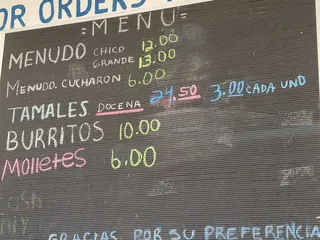 OR ORDERS
=MENU=
MENUDO CHICO 12.00
GRANDE 13.00
MENUDO. CUCHARON 6.00
TAMALES DOCENA 24.50 3.00 CADA UNO
BURRITOS 10.00
Molletes 6.00
GRACIAS POR SU PREFERENCIA